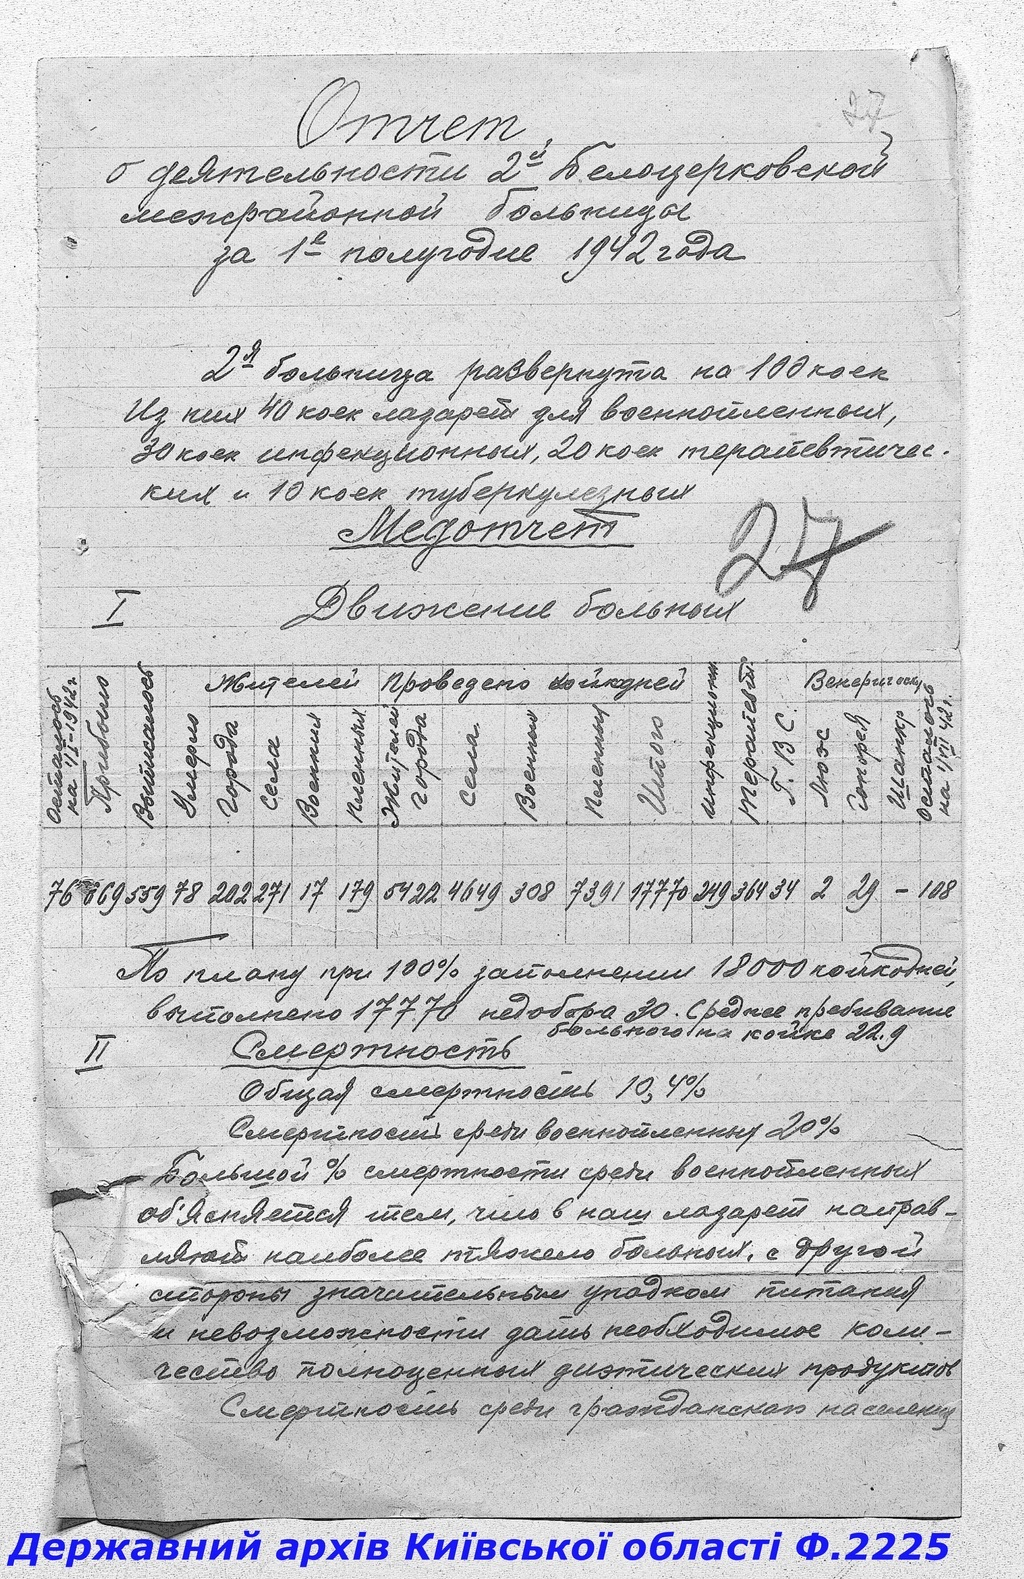 27
Отчет
о деятельности 2й Белоцерковской
межрайонной больницы
за 1е полугодие 1942 года
2я больница развернута на 100 коек
Из них 40 коек лазарет для военнопленных,
30 коек инфекционных, 20 коек терапевтичес-
ких и 10 коек туберкулезных
Медотчет
27
I Движение больных
Осталось на 1/I-1942 г.
Прибыло
Выписалось
Умерло
Жителей
Города
Села
Военных
Пленных
Проведено койкодней
Жителей города
Села
Военных
Пленных
Итого
Инфекционн
Терапевт
Т.В.С.
Венерическ
Люэс
Гонорея
Шанкр
Осталось на 1/VII 42 г.
76 669 559 78 202 271 17 179 5422 4649 308 7391 17770 249 364 34 2 29 - 108
По плану при 100% заполнении 18000 койкодней,
выполнено 17770 недобора 30. Среднее пребивание
больного на койке 22.9
II Смертность
Общая смертность 10,4%
Смертность среди военнопленных 20%
Большой % смертности среди военнопленных
об'ясняется тем, что в наш лазарет направ-
ляют наиболее тяжело больных, с другой
стороны значительным упадком питания
и невозможности дать необходимое коли-
чество полноценных диэтических продуктов
Смертность среди гражданского населения
Державний архів Київської області Ф.2225